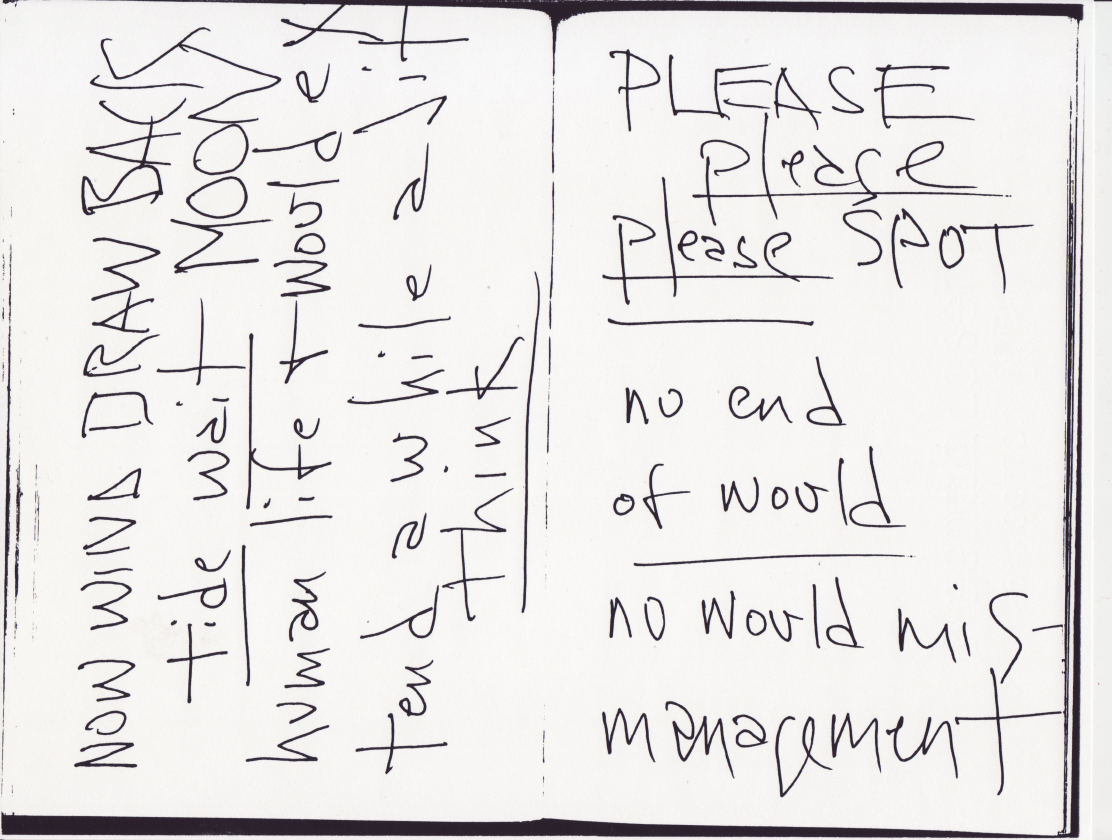 NOW WIND DRAW BACK
tide wait MOON
human life t would ex
tend a while a
twink
PLEASE
please
please SPOT
no end
of would
no would mis-
management